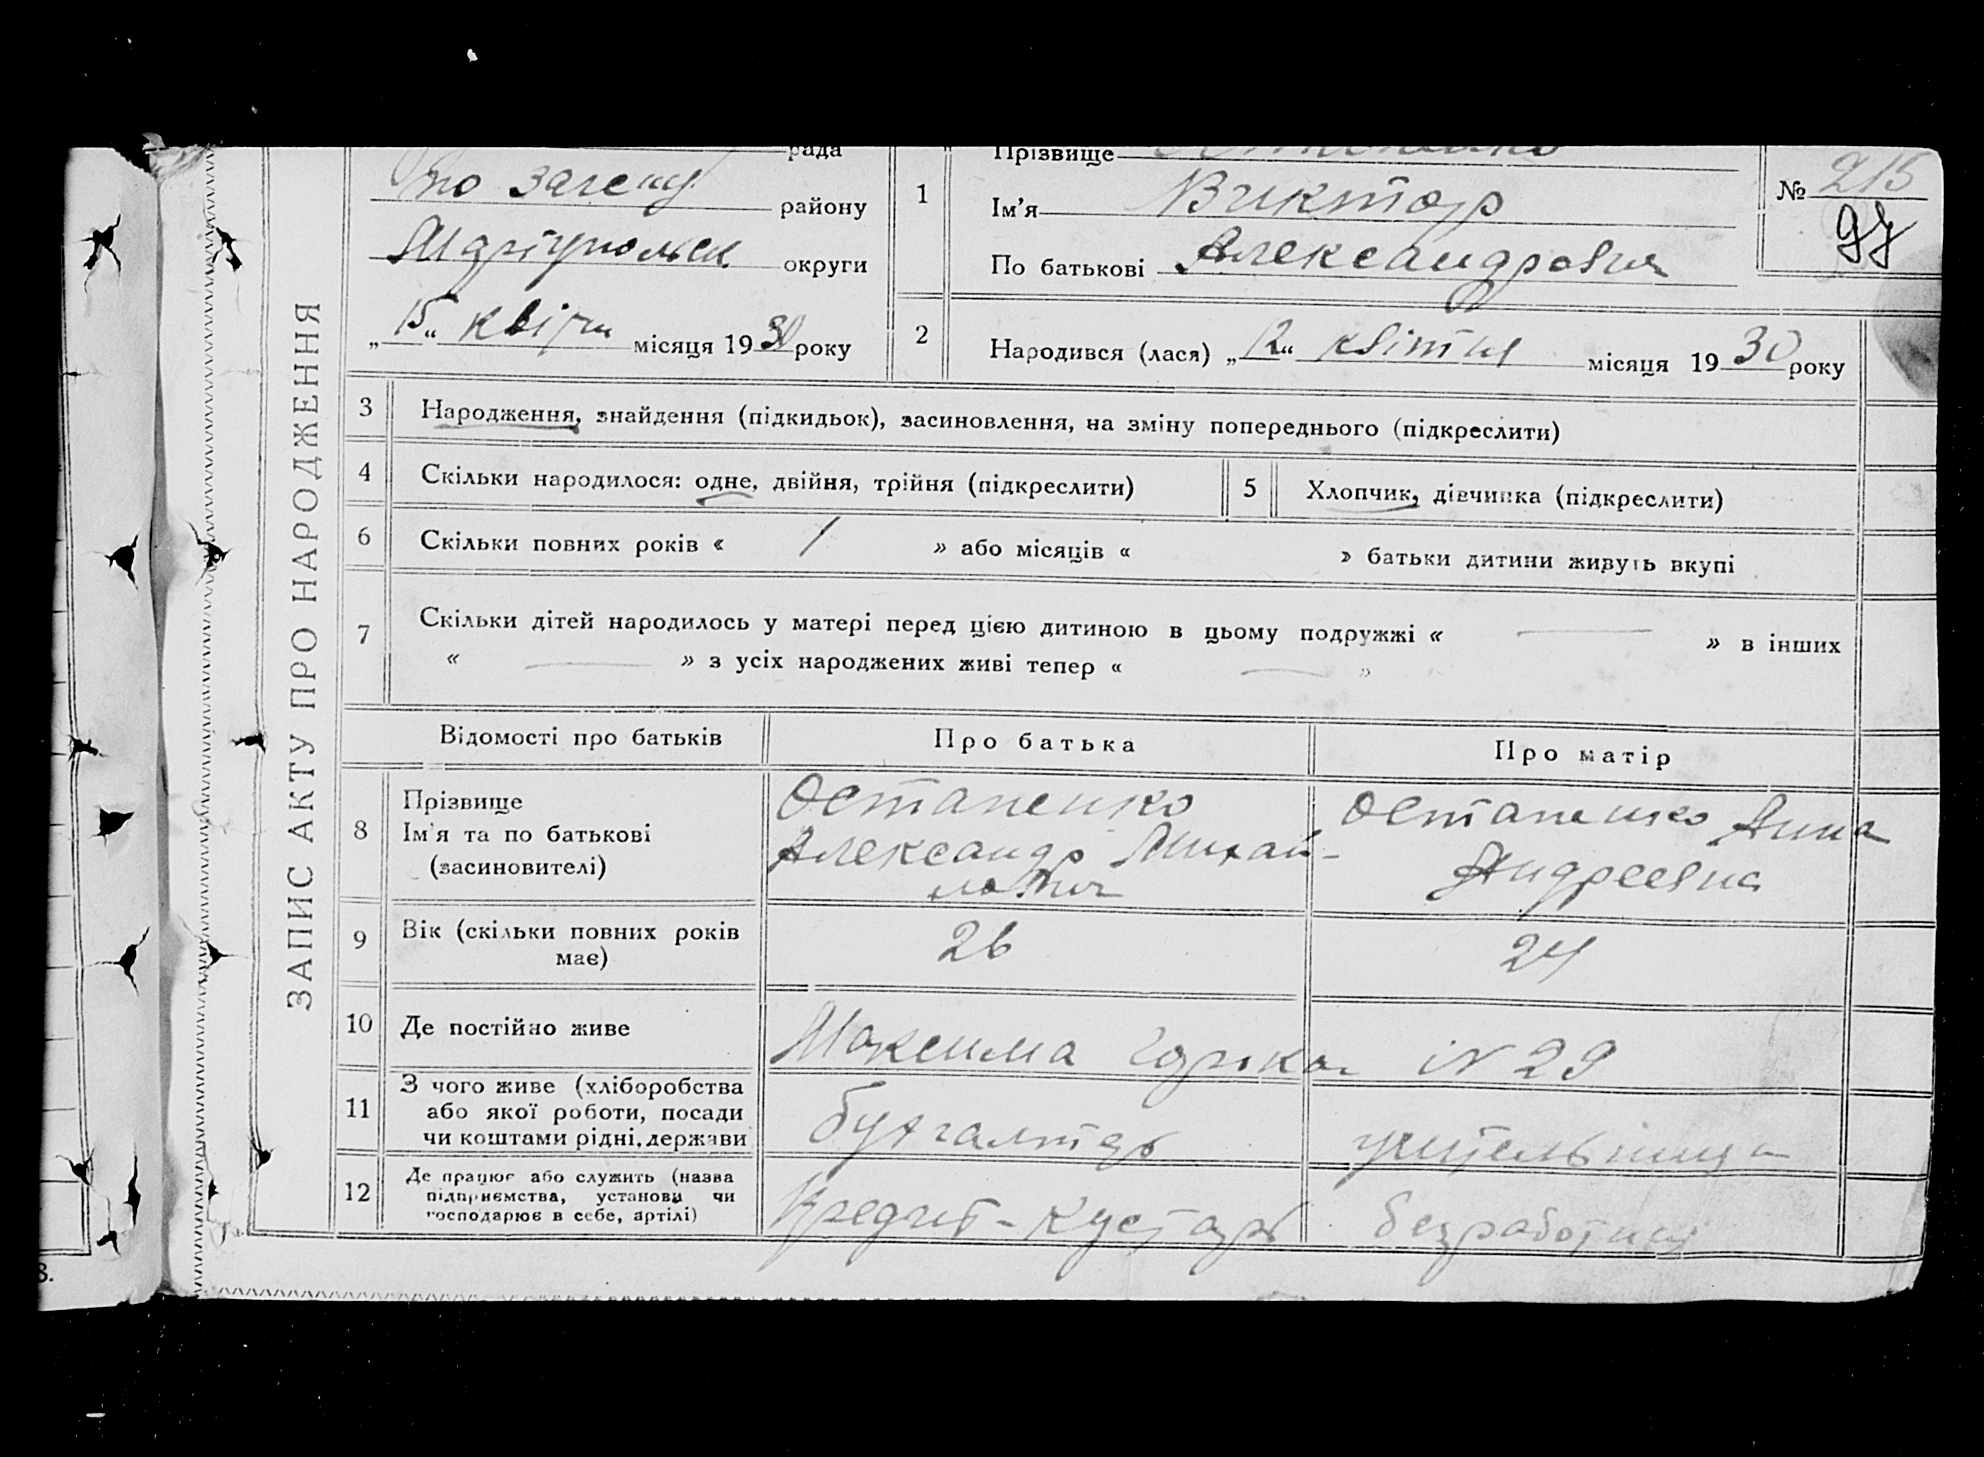 рада
Прізвище
№ 215
по загсу району
1 Ім'я Виктор
97
Маріупольск округи
По батькові Александрович
„15“ квітн місяця 1930 року
2 Народився (лася) „12“ квітня місяця 1930 року
ЗАПИС АКТУ ПРО НАРОДЖЕННЯ
3 Народження, знайдення (підкидьок), засиновлення, на зміну попереднього (підкреслити)
4 Скільки народилося: одне, двійня, трійня (підкреслити)
5 Хлопчик, дівчинка (підкреслити)
6 Скільки повних років « 1 » або місяців « » батьки дитини живуть вкупі
7 Скільки дітей народилось у матері перед цією дитиною в цьому подружжі « — » в інших
« — » з усіх народжених живі тепер « — »
Відомості про батьків
Про батька
Про матір
8 Прізвище
Ім'я та по батькові
(засиновителі)
Остапенко
Александр Михай-
лович
Остапенко Анна
Андреевна
9 Вік (скільки повних років
має)
26
24
10 Де постійно живе
Максима Горька N 29
11 З чого живе (хліборобства
або якої роботи, посади
чи коштами рідні, держави
бухгалтер
учительниця
12 Де працює або служить (назва
підприємства, установи чи
господарює в себе, артілі)
Кредит-Кустар
безработн